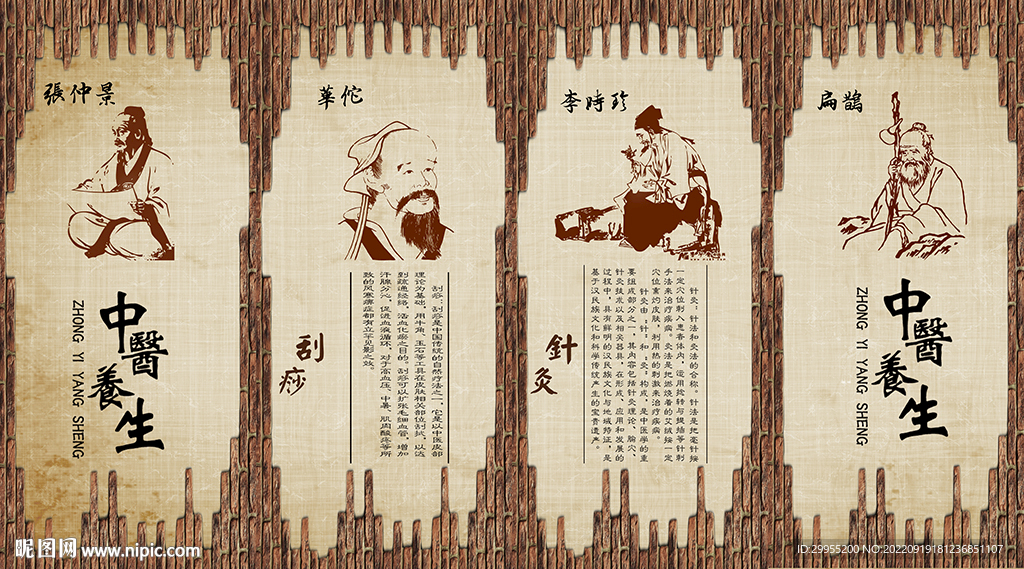 張仲景
中醫養生
ZHONG YI YANG SHENG
華佗
刮痧
刮痧：刮痧是中国传统的自然疗法之一，它是以中医皮部
理论为基础，用牛角、玉石等工具在皮肤相关部位刮拭，以达
到疏通经络、活血化瘀之目的。刮痧可以扩张毛细血管，增加
汗腺分泌，促进血液循环，对于高血压、中暑、肌肉酸疼等所
致的风寒痹症都有立竿见影之效。
李時珍
針灸
针灸：针法和灸法的合称。针法是把毫针按
一定穴位刺入患者体内，运用捻转与提插等针刺
手法来治疗疾病。灸法是把燃烧着的艾绒按一定
穴位熏灼皮肤，利用热的刺激来治疗疾病。
针灸由“针”和“灸”构成，是中医学的重
要组成部分之一，其内容包括针灸理论、腧穴、
针灸技术以及相关器具，在形成、应用和发展的
过程中，具有鲜明的汉民族文化与地域特征，是
基于汉民族文化和科学传统产生的宝贵遗产。
扁鵲
中醫養生
ZHONG YI YANG SHENG
昵图网 www.nipic.com
ID:29955200 NO:20220919181236851107